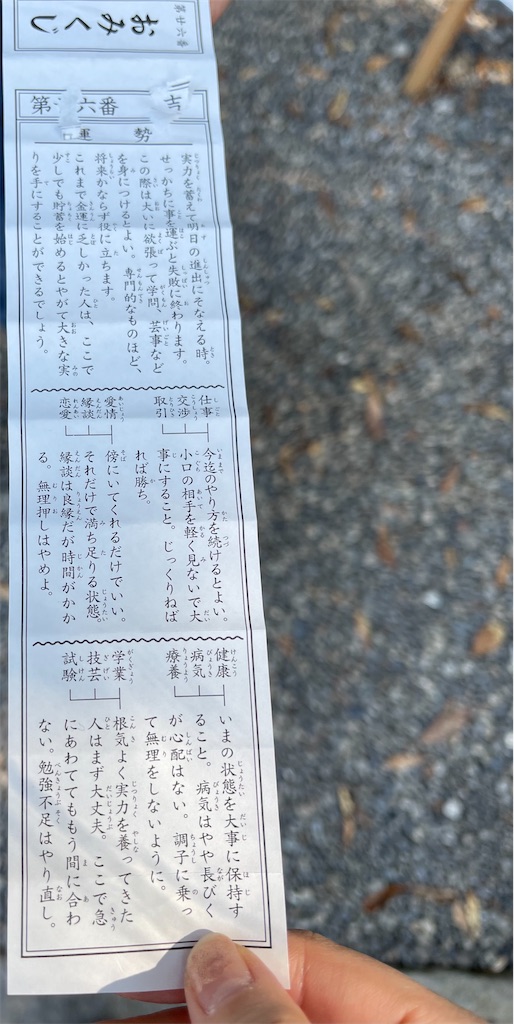 第廿六番
おみくじ
第 六番 吉
運勢
実力を蓄えて明日の進出にそなえる時。
せっかちに事を運ぶと失敗に終わります。
この際は大いに欲張って学問、芸事など
を身につけるとよい。専門的なものほど、
将来かならず役に立ちます。
これまで金運に乏しかった人は、ここで
少しでも貯蓄を始めるとやがて大きな実
りを手にすることができるでしょう。
仕事
交渉
取引
今迄のやり方を続けるとよい。
小口の相手を軽く見ないで大
事にすること。じっくりねば
れば勝ち。
愛情
縁談
恋愛
傍にいてくれるだけでいい。
それだけで満ち足りる状態。
縁談は良縁だが時間がかか
る。無理押しはやめよ。
健康
病気
療養
いまの状態を大事に保持す
ること。病気はやや長びく
が心配はない。調子に乗っ
て無理をしないように。
学業
技芸
試験
根気よく実力を養ってきた
人はまず大丈夫。ここで急
にあわててももう間に合わ
ない。勉強不足はやり直し。